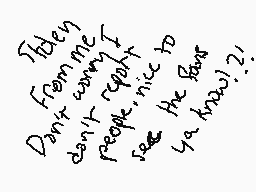 From me
Don't worry I
don't report
people, nice to
see the fans
ya know!?!